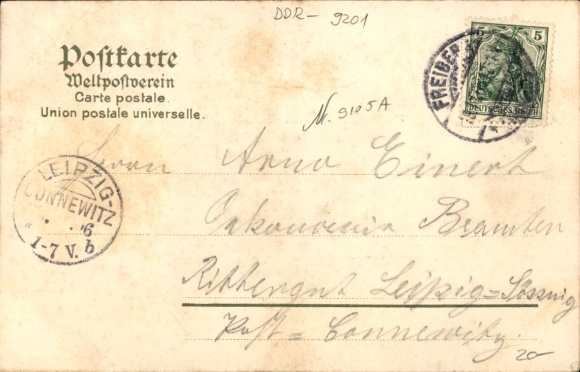 DDR- 9201
5
DEUTSCHES REICH
FREIBER
Postkarte
Weltpostverein
Carte postale.
Union postale universelle.
Nr. 9105A
Herrn Arno Einert
Oekonomie Beamten
Rittergut Leipzig=Lössnig
Post=Connewitz.
LEIPZIG-
CONNEWITZ
6
1-7 V. b
20-